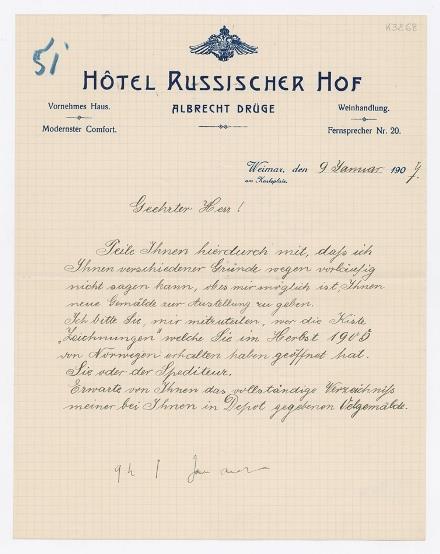 K3868
51
HÔTEL RUSSISCHER HOF
Vornehmes Haus.
ALBRECHT DRÜGE
Weinhandlung.
Modernster Comfort.
Fernsprecher Nr. 20.
Weimar, den 9 Januar 1907.
am Karlsplatz.
Geehrter Herr!
Teile Ihnen hierdurch mit, daß ich
Ihnen verschiedener Gründe wegen vorläufig
nicht sagen kann, ob es mir möglich ist, Ihnen
neue Gemälde zur Austellung zu geben.
Ich bitte Sie, mir mitzuteilen, wer die Kiste
„Zeichnungen" welche Sie im Herbst 1905
von Norwegen erhalten haben geöffnet hat.
Sie oder der Spediteur.
Erwarte von Ihnen das vollständige Verzeichniß
meiner bei Ihnen in Depot gegebenen Oelgemälde.